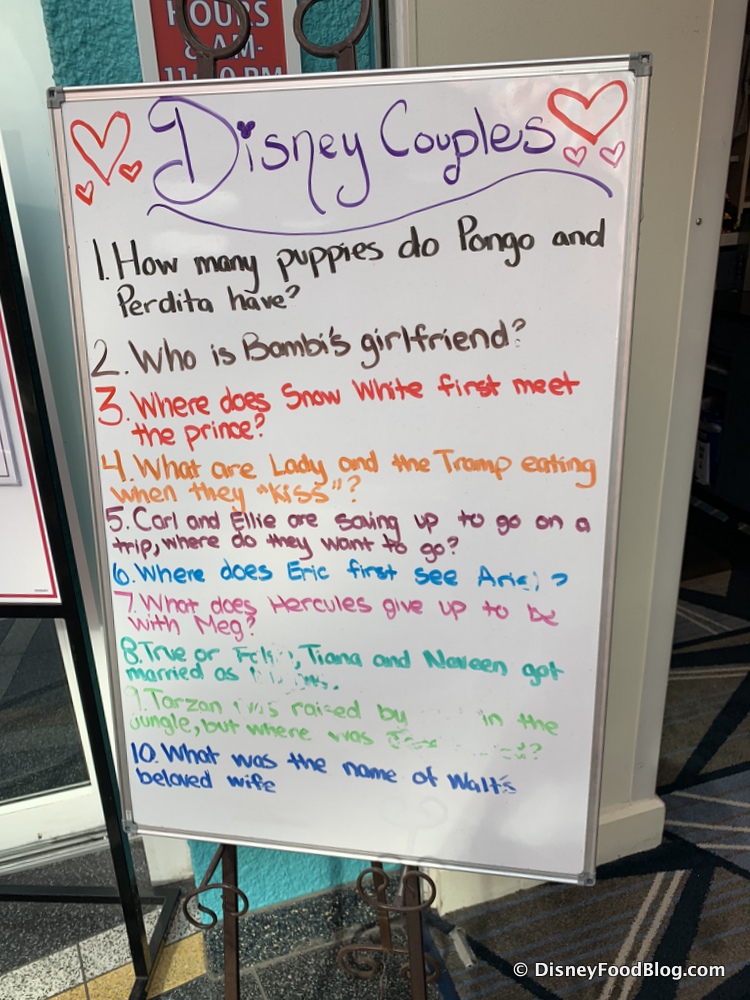 HOURS
8 AM-
Disney Couples
1. How many puppies do Pongo and
Perdita have?
2. Who is Bambi's girlfriend?
3. Where does Snow White first meet
the prince?
4. What are Lady and the Tramp eating
when they "kiss"?
5. Carl and Ellie are saving up to go on a
trip, where do they want to go?
6. Where does Eric first see Ariel?
7. What does Hercules give up to be
with Meg?
8. True or, Tiana and Naveen got
married as
9. Tarzan was raised by in the
jungle, but where was
10. What was the name of Walt's
beloved wife
© DisneyFoodBlog.com